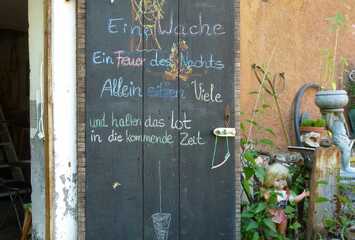 Eine Wache
Ein Feuer des Nachts
Allein eilsen Viele
und halten das Lot
in die kommende Zeit